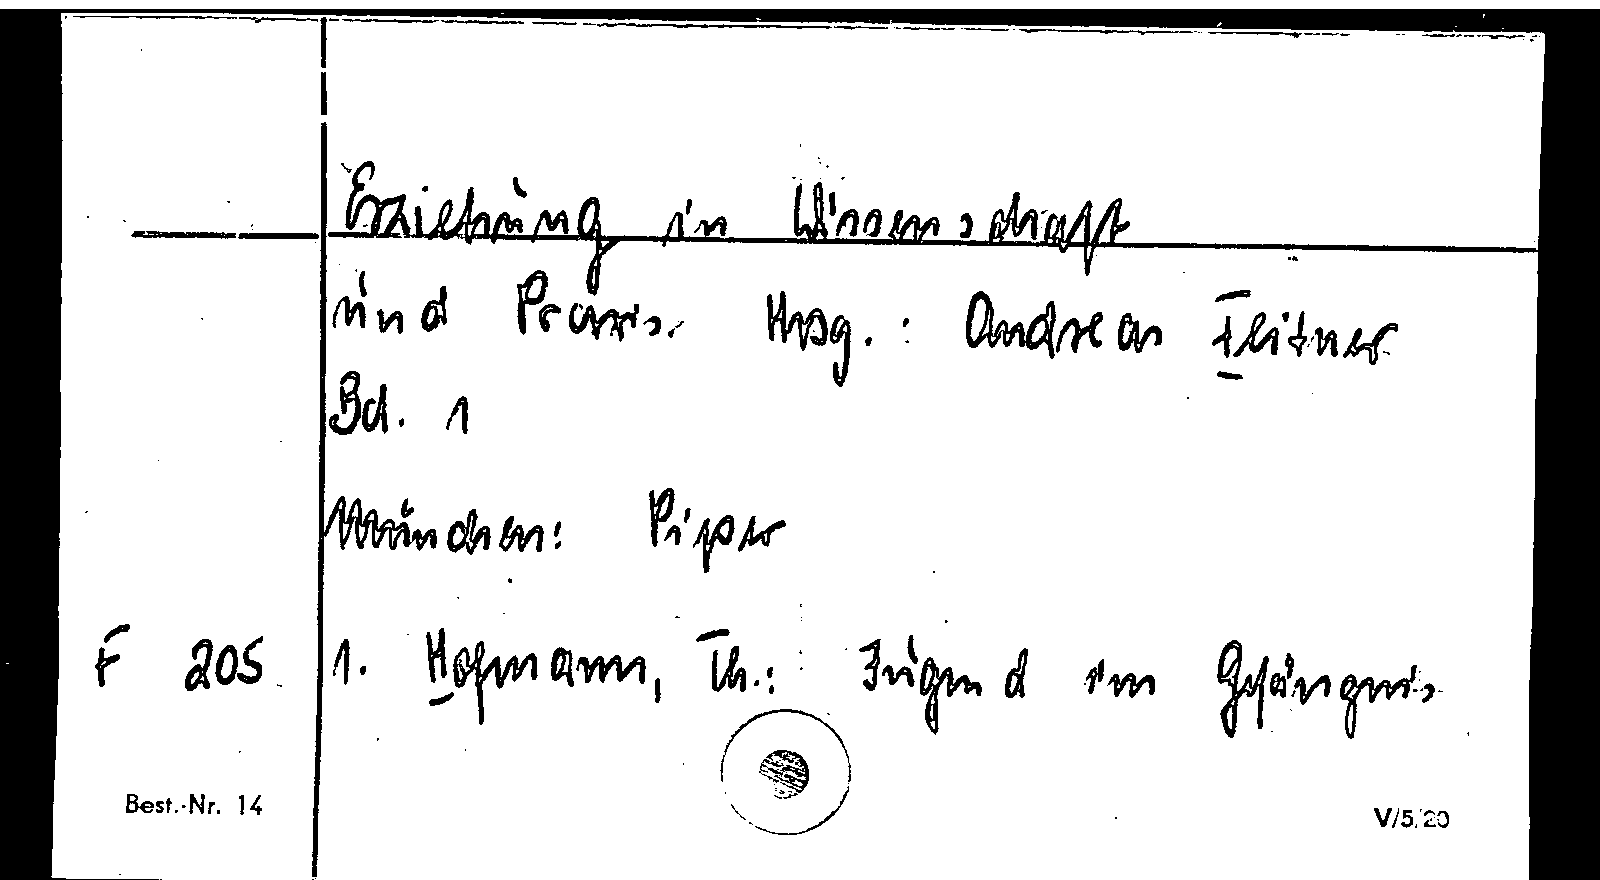 Erziehung in Wissenschaft
und Praxis. Hrsg.: Andreas Flitner
Bd. 1
München: Piper
F 205 1. Hofmann, Th.: Jugend im Gefängnis
Best.-Nr. 14 V/5/20